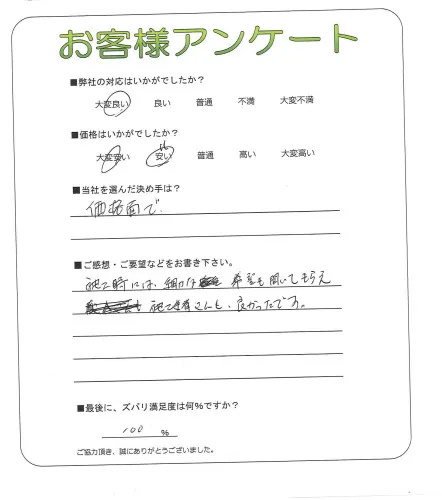 お客様アンケート
■弊社の対応はいかがでしたか？
大変良い 良い 普通 不満 大変不満
■価格はいかがでしたか？
大変安い 安い 普通 高い 大変高い
■当社を選んだ決め手は？
価格面で.
■ご感想・ご要望などをお書き下さい。
施工時には、細かな 希望も聞いてもらえ
施工業者さんも、良かったです。
■最後に、ズバリ満足度は何％ですか？
100 ％
ご協力頂き、誠にありがとうございました。